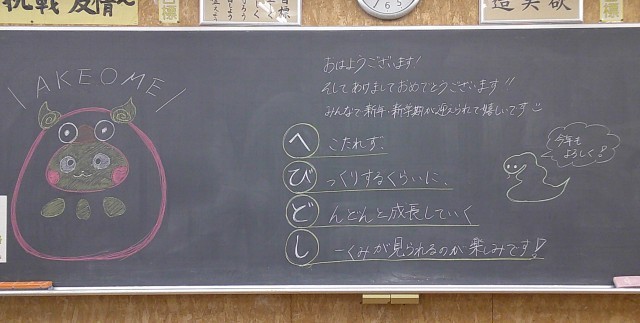 挑戦 友情
目標
造 美 欲
目標
6 5
\AKEOME/
おはようございます!
そしてあけましておめでとうございます!!
みんなで新年・新学期が迎えられて嬉しいです
へこたれず、
びっくりするくらいに、
どんどんと成長していく
し一くみが見られるのが楽しみです!
今年も
よろしく!